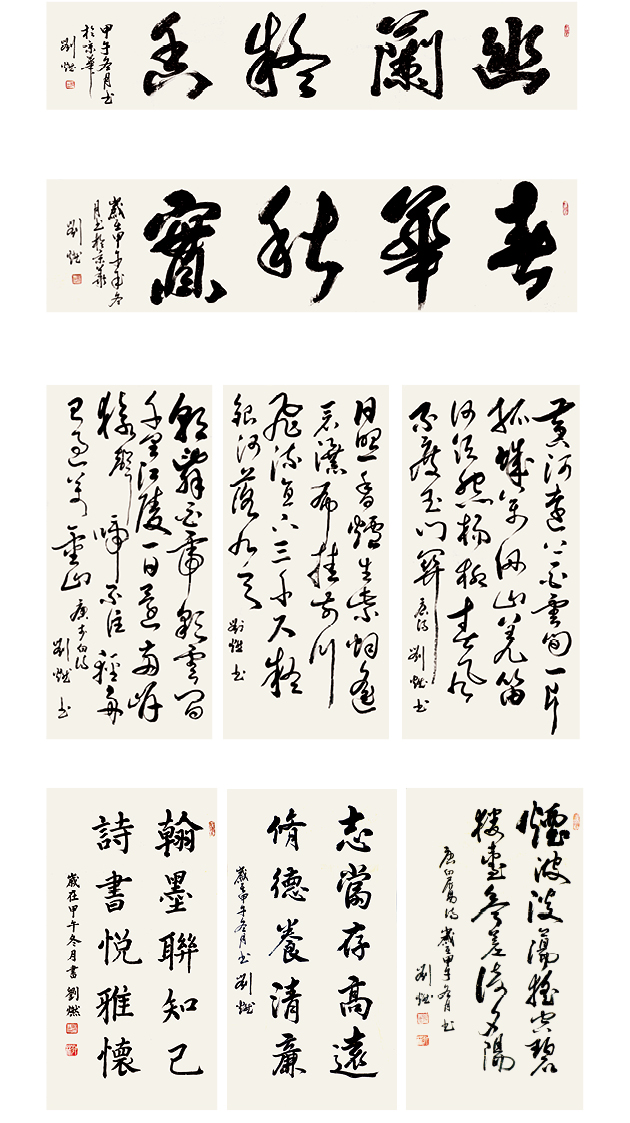 幽蘭凝香
甲午冬月書
於京華
劉燃
春華秋實
歲在甲午年冬
月書於京華
劉燃
黃河遠上白雲間一片
孤城萬仞山羌笛
何須怨楊柳春風
不度玉門關 唐詩 劉燃書
日照香爐生紫煙遙
看瀑布掛前川
飛流直下三千尺疑
銀河落九天 劉燃書
朝辭白帝彩雲間
千里江陵一日還兩岸
猿聲啼不住輕舟
已過萬重山 唐李白詩
劉燃書
煙波淡蕩搖空碧
樓殿參差倚夕陽
唐白居易詩 歲在甲午冬月書
劉燃
志當存高遠
脩德養清廉
歲在甲午冬月書 劉燃
翰墨聯知己
詩書悅雅懷
歲在甲午冬月書劉燃